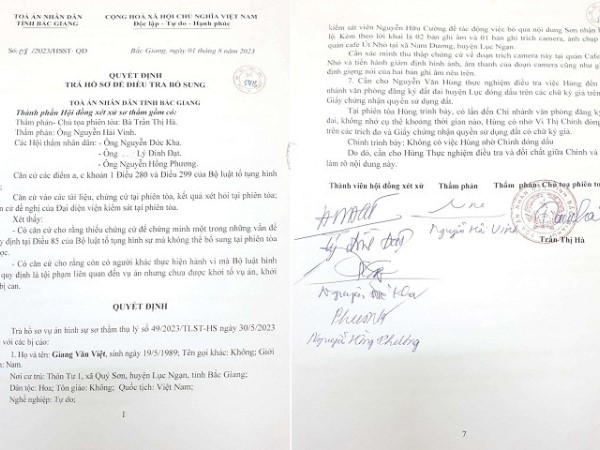 TOÀ ÁN NHÂN DÂN
TỈNH BẮC GIANG
CỘNG HOÀ XÃ HỘI CHỦ NGHĨA VIỆT NAM
Độc lập - Tự do - Hạnh phúc
/2023/HSST- QĐ
Bắc Giang, ngày 01 tháng 8 năm 2023
QUYẾT ĐỊNH
TRẢ HỒ SƠ ĐỂ ĐIỀU TRA BỔ SUNG
TOÀ ÁN NHÂN DÂN TỈNH BẮC GIANG
Thành phần Hội đồng xét xử sơ thẩm gồm có:
Thẩm phán- Chủ tọa phiên tòa: Bà Trần Thị Hà.
Thẩm phán: Ông Nguyễn Hải Vinh.
Các Hội thẩm nhân dân: - Ông Nguyễn Đức Khu.
- Ông Lý Đình Đạt.
- Ông Nguyễn Hồng Phương.
Căn cứ các điểm a, c khoản 1 Điều 280 và Điều 299 của Bộ luật tố tụng hình
Căn cứ vào các tài liệu, chứng cứ tại phiên tòa, kết quả xét hỏi tại phiên tòa;
cứ đề nghị của Đại diện viện kiểm sát tại phiên tòa.
Xét thấy:
- Có căn cứ cho rằng thiếu chứng cứ để chứng minh một trong những vấn đề
định tại Điều 85 của Bộ luật tố tụng hình sự mà không thể bổ sung tại phiên tòa
- Có căn cứ cho rằng còn có người khác thực hiện hành vi mà Bộ luật hình
quy định là tội phạm liên quan đến vụ án nhưng chưa được khởi tố vụ án, khởi
bị can.
QUYẾT ĐỊNH
Trả hồ sơ vụ án hình sự sơ thẩm thụ lý số 49/2023/TLST-HS ngày 30/5/2023
với các bị cáo:
1. Họ và tên: Giang Văn Việt, sinh ngày 19/5/1989; Tên gọi khác: Không; Giới
Nam.
Nơi cư trú: Thôn Tư 1, xã Quý Sơn, huyện Lục Ngạn, tỉnh Bắc Giang;
Dân tộc: Hoa; Tôn giáo: Không; Quốc tịch: Việt Nam;
Nghề nghiệp: Tự do;
1
kiểm sát viên Nguyễn Hữu Cường để tác động việc bỏ qua nội dung Sơn nhận
lộ. Kèm theo lời khai là 02 bản ghi âm và 01 bản ghi trích camera, ảnh chụp
quán cafe Út Nhỏ tại xã Nam Dương, huyện Lục Ngạn.
Cần xác minh thu thập chứng cứ về đoạn trích camera này tại quán Cafe
Nhỏ và tiến hành giám định hình ảnh, âm thanh của đoạn camera cũng như
định giọng nói của hai bản ghi âm nêu trên.
7. Cần cho Nguyễn Văn Hùng thực nghiệm điều tra việc Hùng đến
nhánh văn phòng đăng ký đất đai huyện Lục đóng dấu trên các chữ ký trên
chứng nhận quyền sử dụng đất.
Tại phiên tòa Hùng trình bày, có lần đến Chi nhánh văn phòng đăng
đai, không nhớ cụ thể không thời gian nào, Hùng có nhờ Vi Thị Chính đóng
trên các trích đo và Giấy chứng nhận quyền sử dụng đất có chữ ký giả.
Chính trình bày: Không có việc Hùng nhờ Chính đóng dấu
Do đó, cần cho Hùng Thực nghiệm điều tra và đối chất giữa Chính và
làm rõ nội dung này.
Thành viên hội đồng xét xử
Thẩm phán
Thẩm phán- Chủ tọa phiên to
Lý Đình Đạt
Nguyễn Hải Vinh
Trần Thị Hà
Nguyễn Đức Khu
Phương
Nguyễn Hồng Phương
7